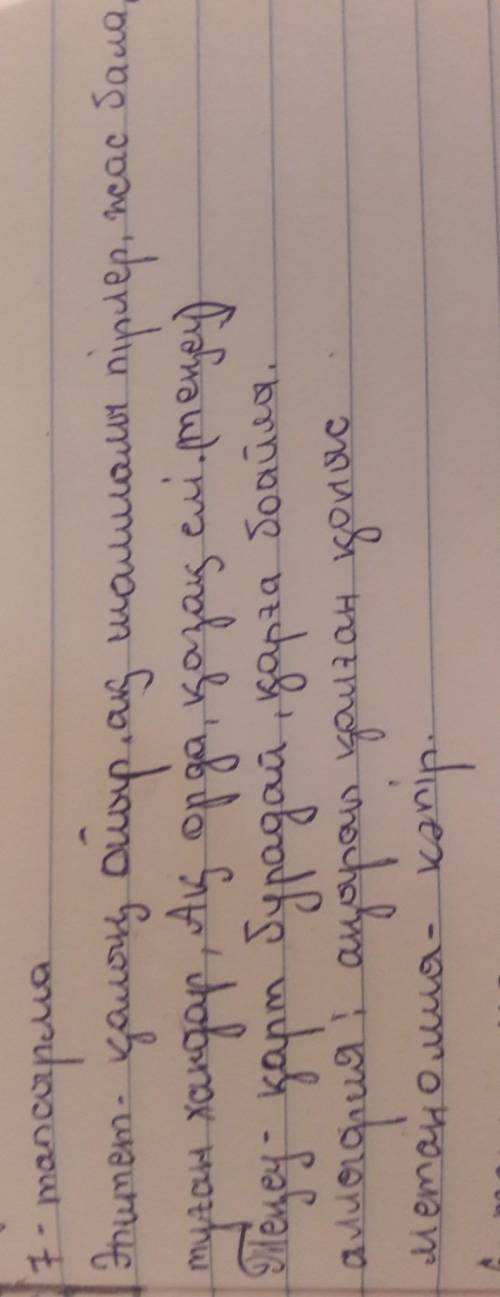 7-тапсырма
Эпитет- қалың ойыр, ақ шалмалы пірлер, жас бала,
туған хандар, Ақ орда, қазақ елі. (теңеу)
Теңеу- қарт бурадай, қарға бойлы.
аллюгрия; аңырап қалған қоныс
метанолия- кәпір.